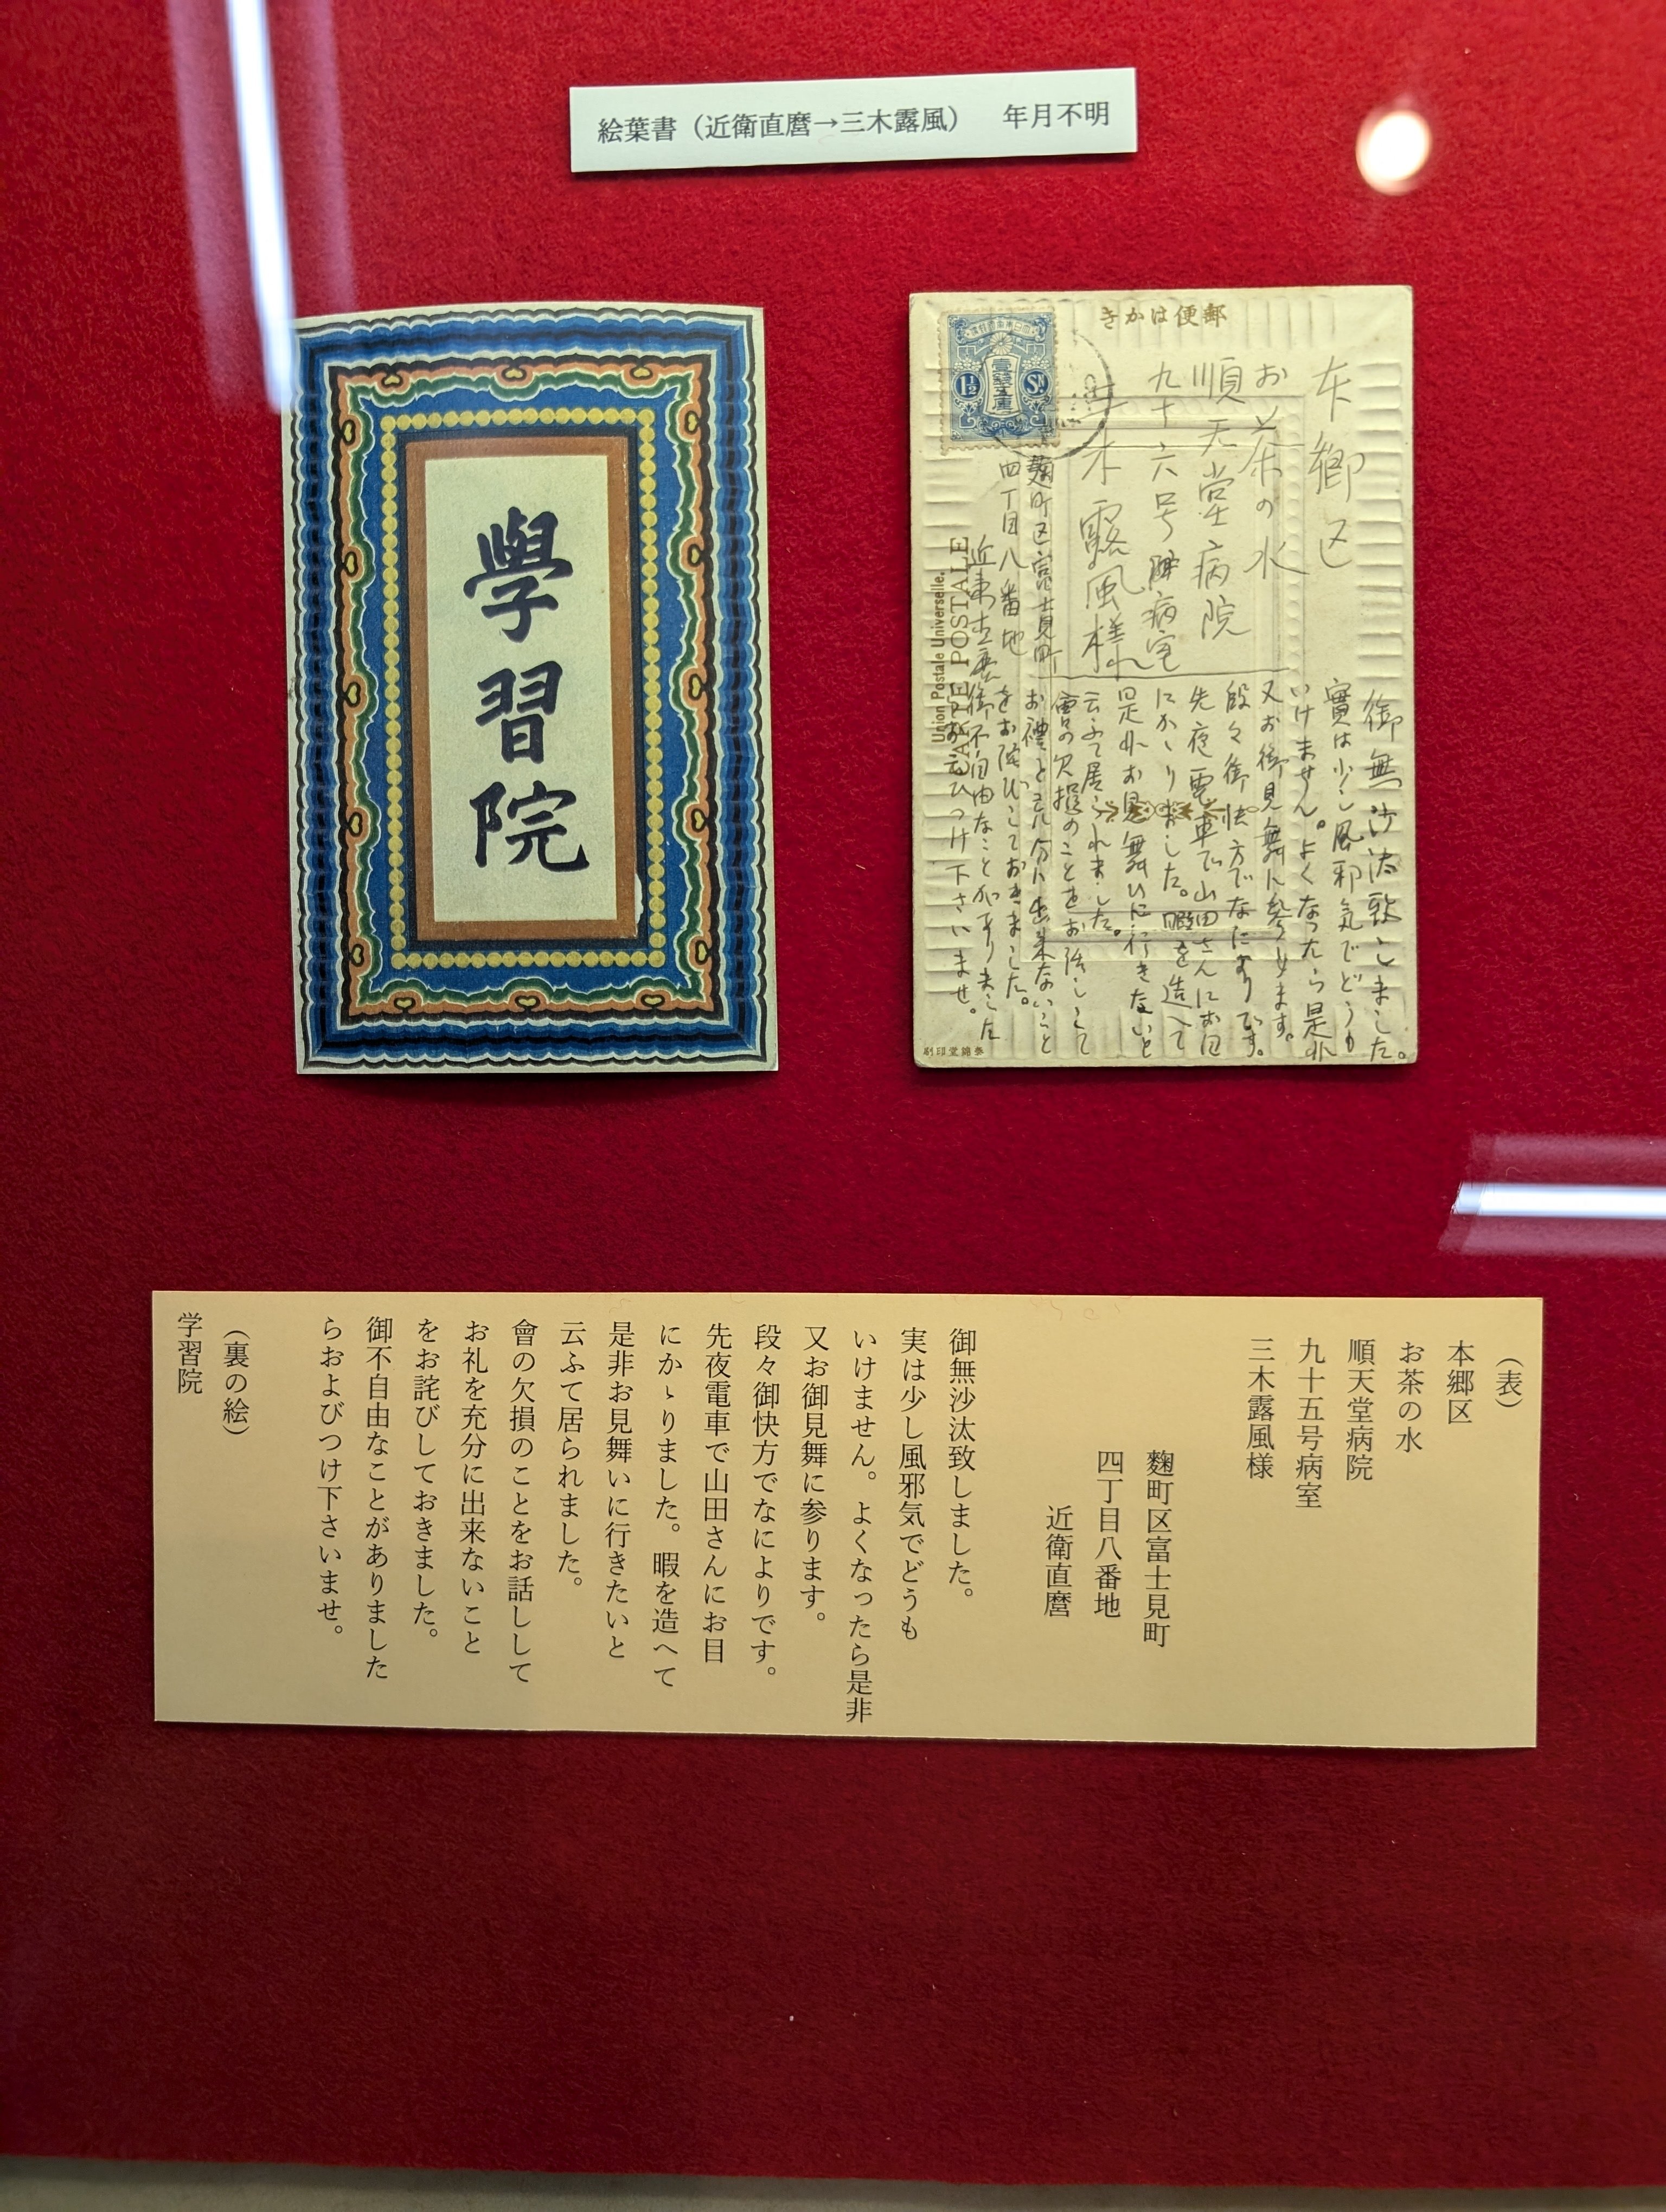 絵葉書（近衛直麿→三木露風）　年月不明
學習院
郵便はかき
壹錢五厘
1½
Sn
本郷区
お茶の水
順天堂病院
九十六号病室
三木露風様
麹町区富士見町
四丁目八番地
近衛直麿
Union Postale Universelle.
CARTE POSTALE
御無沙汰致しました。
實は少し風邪気でどうも
いけません。よくなったら是非
又お御見舞に参ります。
段々御快方でなによりです。
先夜電車で山田さんにお目
にかゝりました。暇を造へて
是非お見舞ひに行きたいと
云ふて居られました。
會の欠損のことをお話しして
お禮を充分に出来ないこと
をお詫びしておきました。
御不自由なことがありました
らおよびつけ下さいませ。
（表）
本郷区
お茶の水
順天堂病院
九十五号病室
三木露風様
麴町区富士見町
四丁目八番地
近衛直麿
御無沙汰致しました。
実は少し風邪気でどうも
いけません。よくなったら是非
又お御見舞に参ります。
段々御快方でなによりです。
先夜電車で山田さんにお目
にかゝりました。暇を造へて
是非お見舞いに行きたいと
云ふて居られました。
會の欠損のことをお話しして
お礼を充分に出来ないこと
をお詫びしておきました。
御不自由なことがありました
らおよびつけ下さいませ。
（裏の絵）
学習院